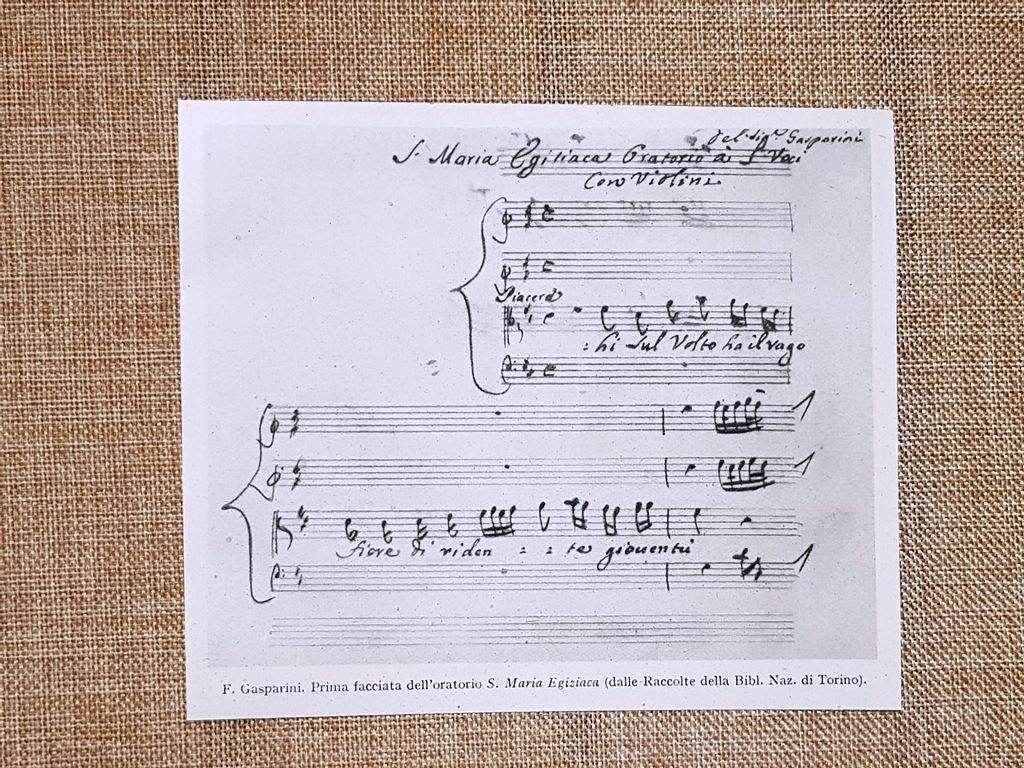 del Sigr. Gasparini
S. Maria Egitiaca Oratorio à 5 Voci
Con Violini
Piacere
:hi sul Volto ha il vago
fiore di riden : : te gioventù
F. Gasparini. Prima facciata dell'oratorio S. Maria Egiziaca (dalle Raccolte della Bibl. Naz. di Torino).